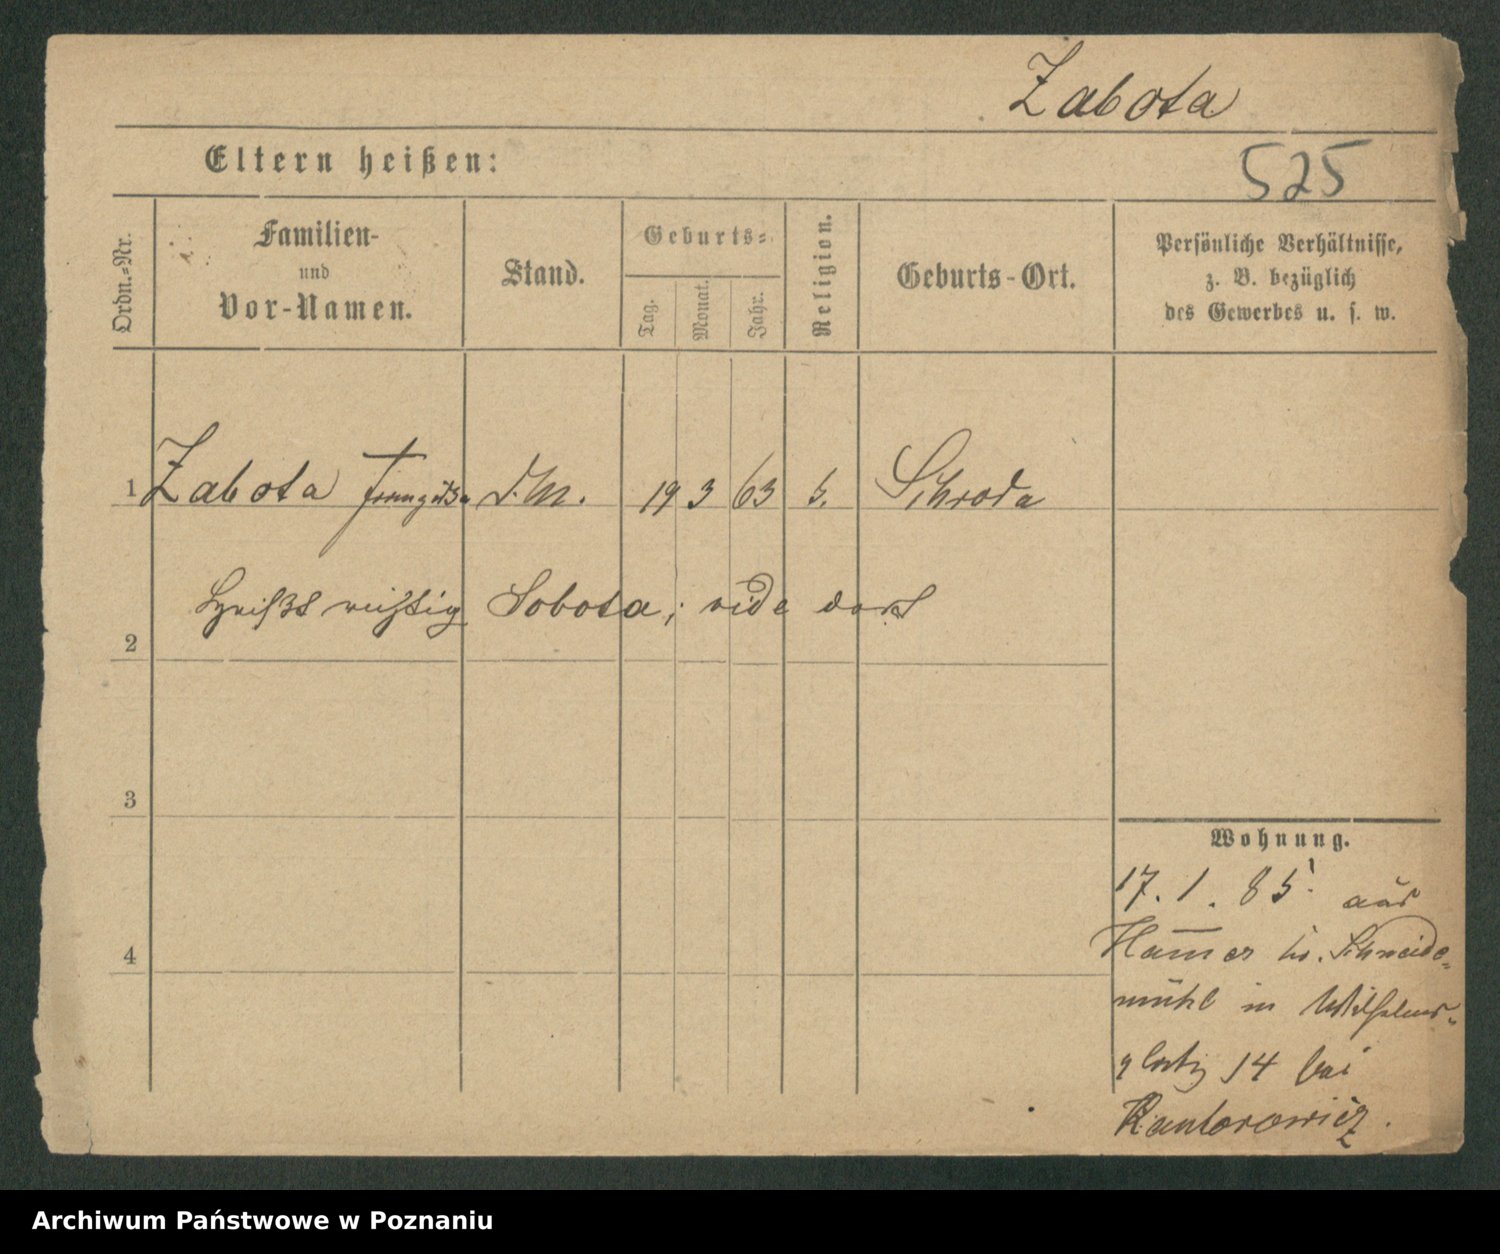 Zabota
Eltern heißen:
525
Ordn.=Nr.
Familien-
und
Vor-Namen.
Stand.
Geburts=
Tag.
Monat.
Jahr.
Religion.
Geburts-Ort.
Persönliche Verhältnisse,
z. B. bezüglich
des Gewerbes u. s. w.
1 Zabota D.M. 19 3 63 Schroda
Heißt richtig Sobota; vide dort
2
3
4
Wohnung.
17. 1. 85. aus
Ham̅er b. Schneide-
mühl in Wilhelms-
platz 14 bei
Kantorowicz.
Archiwum Państwowe w Poznaniu